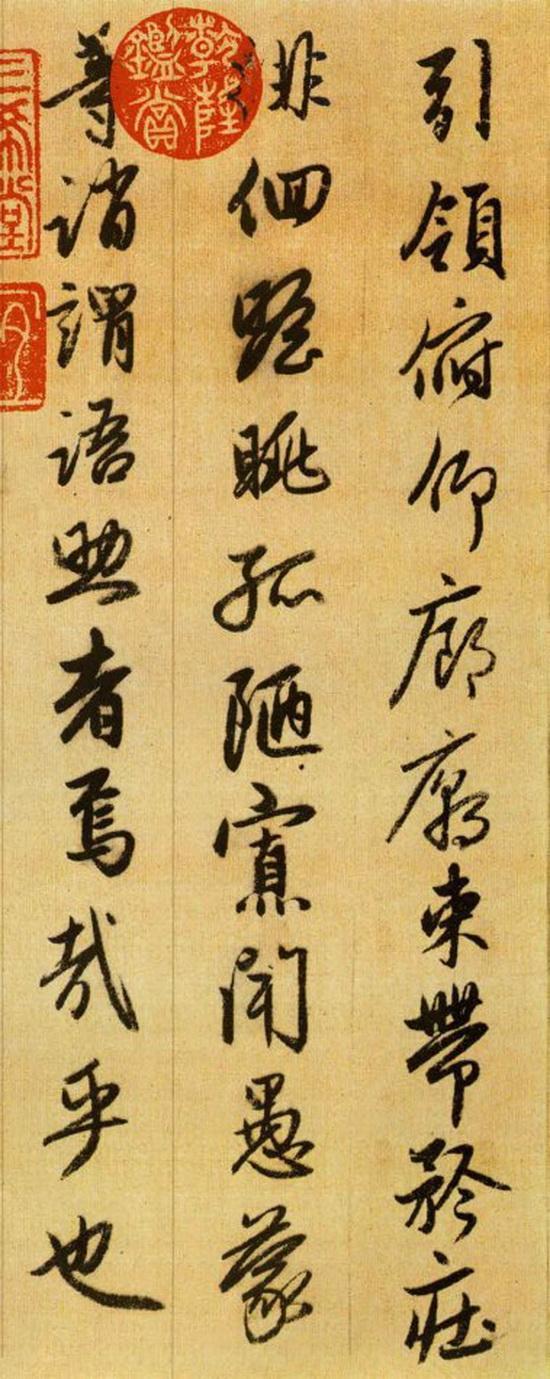 引領俯仰廊廟束帶矜莊
徘徊瞻眺孤陋寡聞愚蒙
等誚謂語助者焉哉乎也
乾隆鑑賞
三希堂